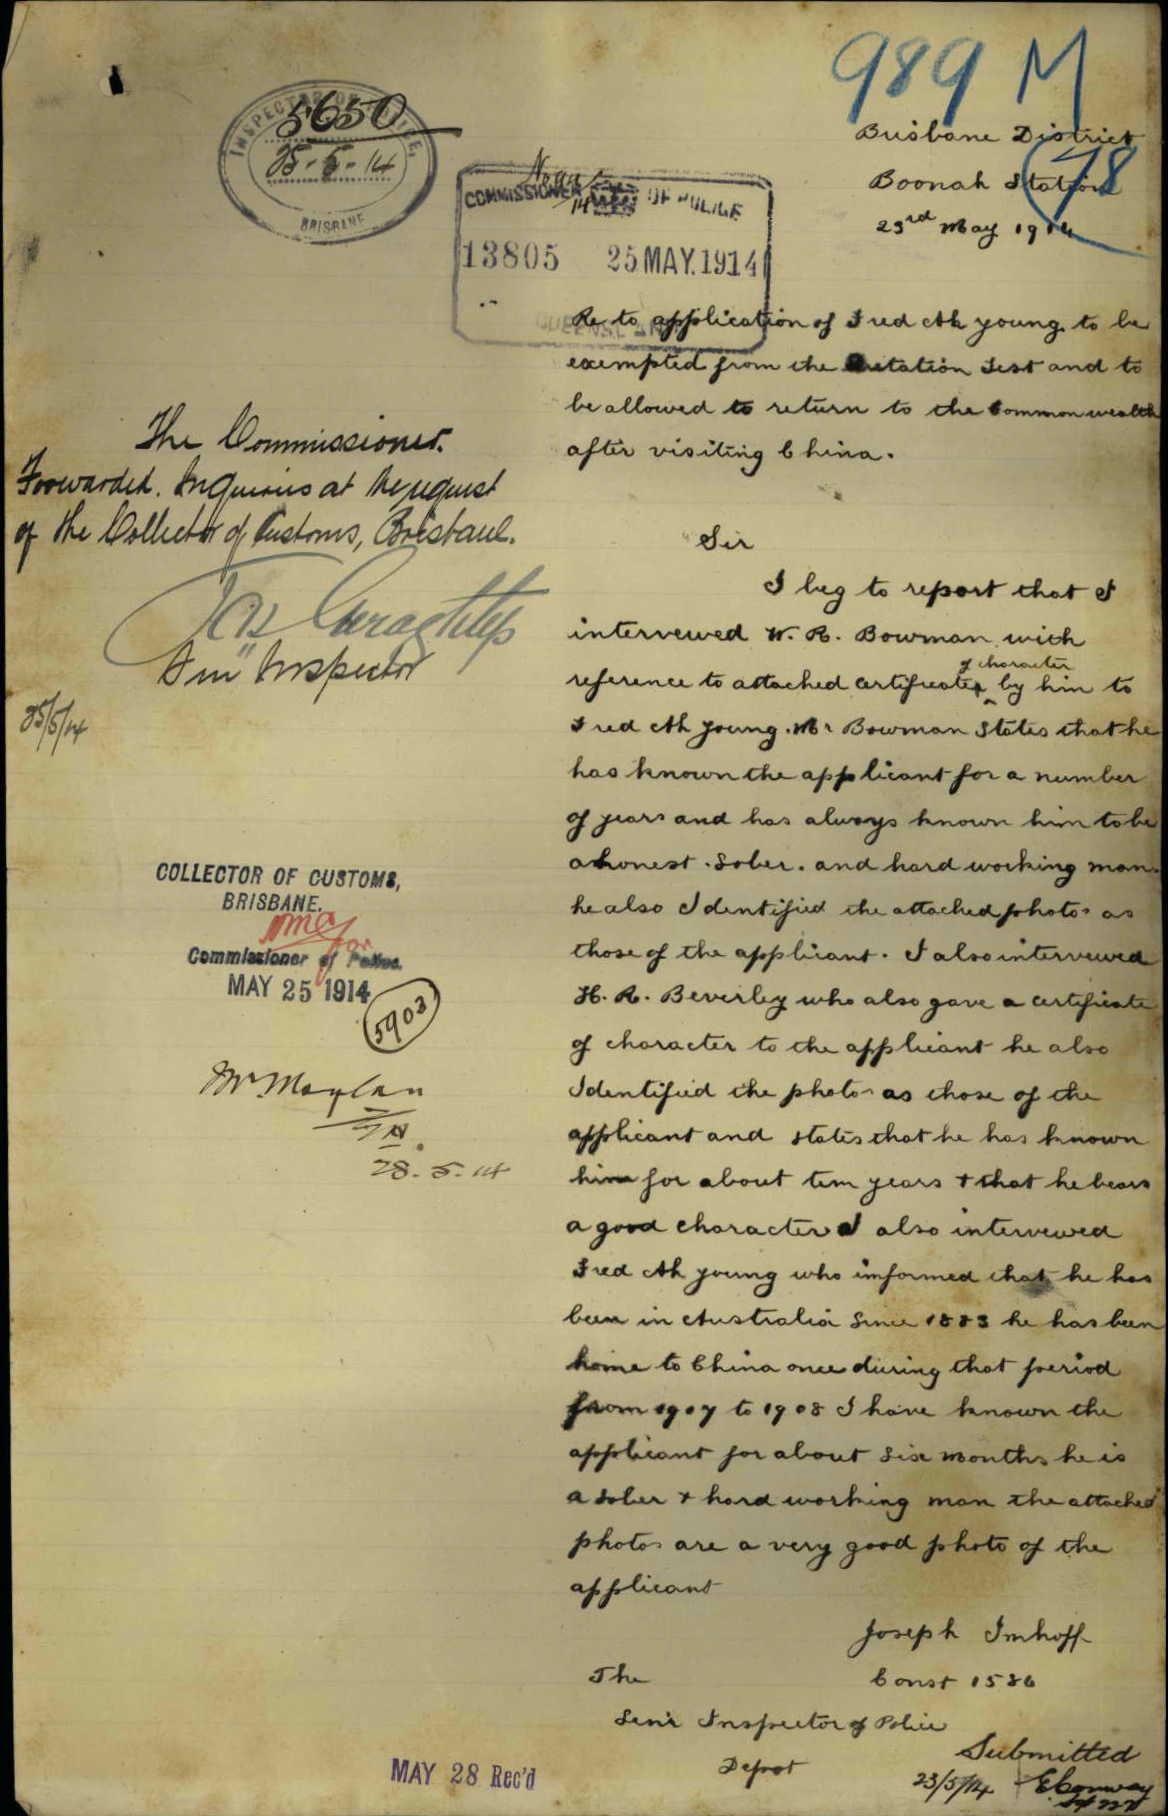 989 M
INSPECTOR OF POLICE,
5650
25-5-14
BRISBANE
Brisbane District
78
Boonah Station
23rd May 1914
COMMISSIONER OF POLICE
13805 25 MAY. 1914
QUEENSLAND
Re to application of Fred Ah young to be
exempted from the Dictation Test and to
be allowed to return to the Commonwealth
after visiting China.
The Commissioner.
Forwarded. Inquiries at the request
of the Collector of Customs, Brisbane.
Senr Inspector
25/5/14
Sir
I beg to report that I
intervewed W. R. Bowman with
of character
reference to attached certificates by him to
Fred Ah young. Mr Bowman States that he
has known the applicant for a number
of years and has always known him to be
a honest. Sober. and hard working man.
he also Identified the attached photos as
those of the applicant. I also intervewed
H. R. Beverley who also gave a certificate
of character to the applicant he also
Identified the photos as those of the
applicant and states that he has known
him for about ten years + that he bears
a good character I also intervewed
Fred Ah young who informed that he has
been in Australia Since 1883 he has been
home to China once during that period
from 1907 to 1908 I have known the
applicant for about Six months he is
a Sober + hard working man the attached
photos are a very good photo of the
applicant
COLLECTOR OF CUSTOMS,
BRISBANE.
for
Commissioner of Police.
MAY 25 1914
5903
Mr Moylan
28.5.14
Joseph Imhoff
Const 1586
The
Senr Inspector of Police
Depot
Submitted
23/5/14 E Conway
MAY 28 Rec'd